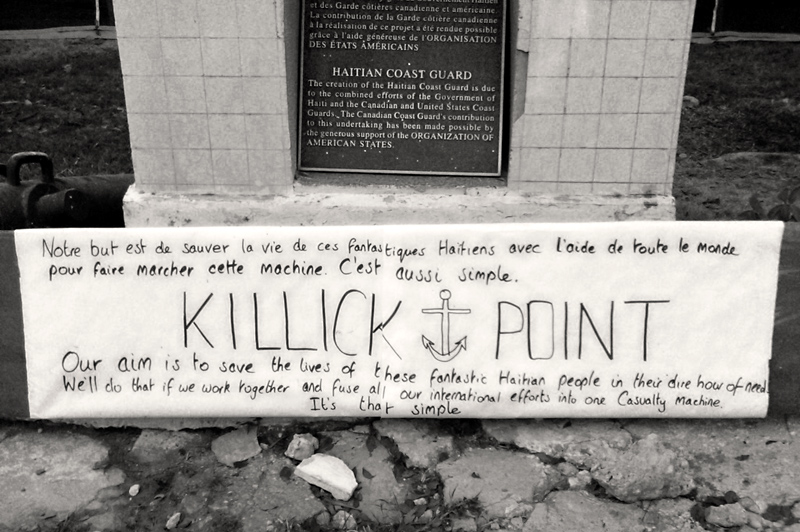 et des Garde côtières canadienne et américaine.
La contribution de la Garde côtière canadienne
à la réalisation de ce projet a été rendue possible
grâce à l'aide généreuse de l'ORGANISATION
DES ÉTATS AMÉRICAINS
HAITIAN COAST GUARD
The creation of the Haitian Coast Guard is due
to the combined efforts of the Government of
Haiti and the Canadian and United States Coast
Guards. The Canadian Coast Guard's contribution
to this undertaking has been made possible by
the generous support of the ORGANIZATION OF
AMERICAN STATES.
Notre but est de sauver la vie de ces fantastiques Haïtiens avec l'aide de toute le monde
pour faire marcher cette machine. C'est aussi simple.
KILLICK POINT
Our aim is to save the lives of these fantastic Haitian people in their dire hour of need.
We'll do that if we work together and fuse all our international efforts into one Casualty Machine.
It's that simple